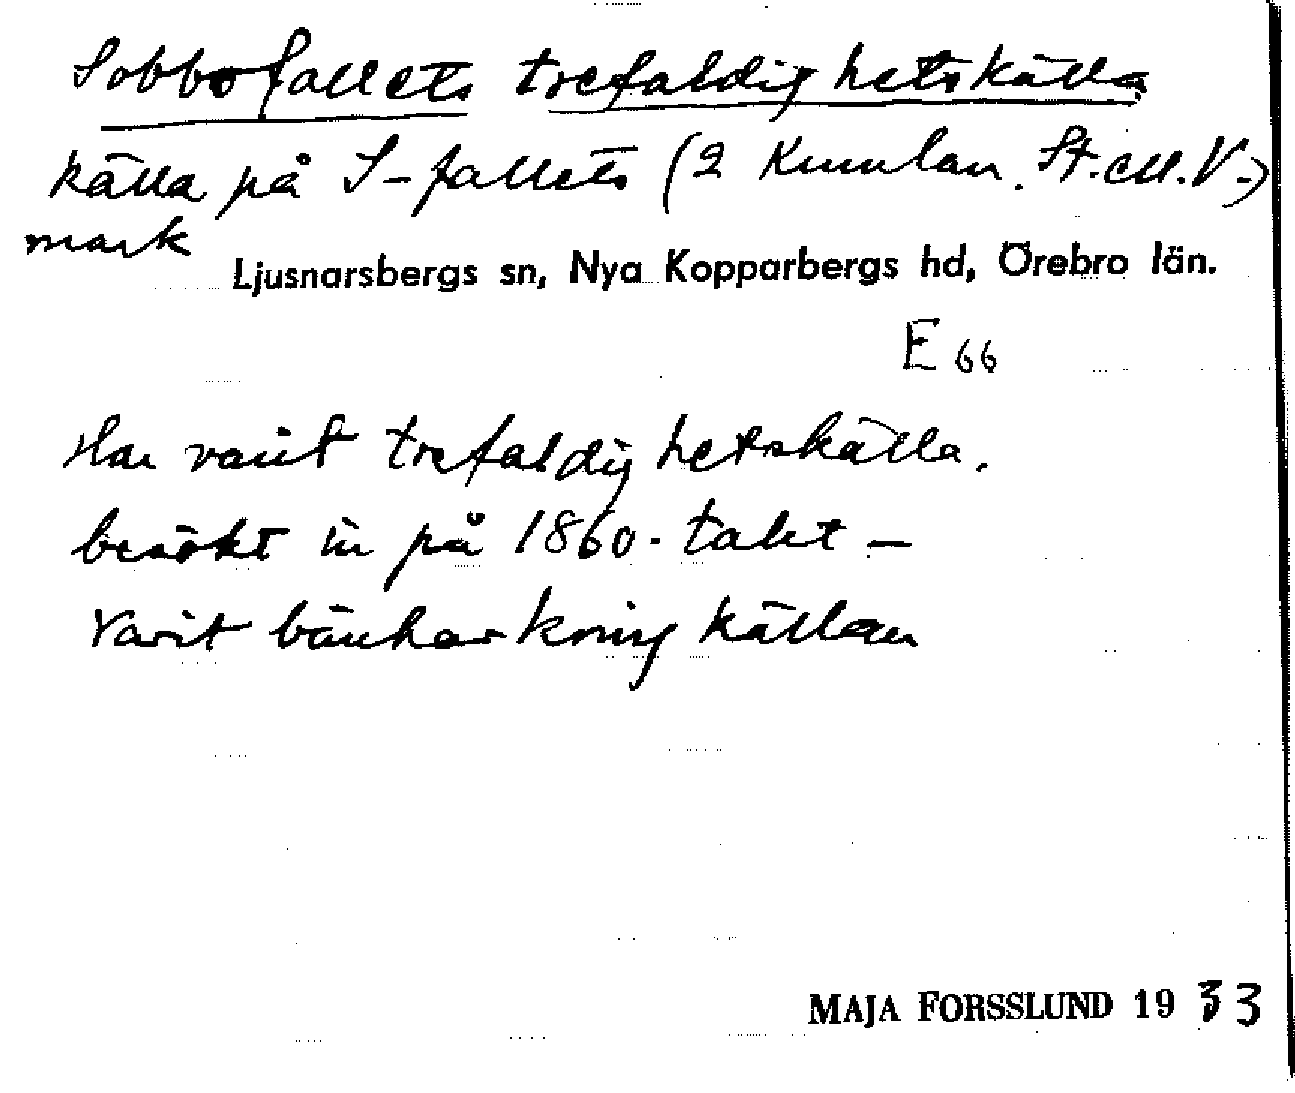 Sobbofallets trefaldighetskälla
källa på S-fallets (2 Kumlan. St. M. V.)
mark
Ljusnarsbergs sn, Nya Kopparbergs hd, Örebro län.
E 66
Har varit trefaldighetskälla.
besökt in på 1860-talet –
Varit bänkar kring källan
MAJA FORSSLUND 1933